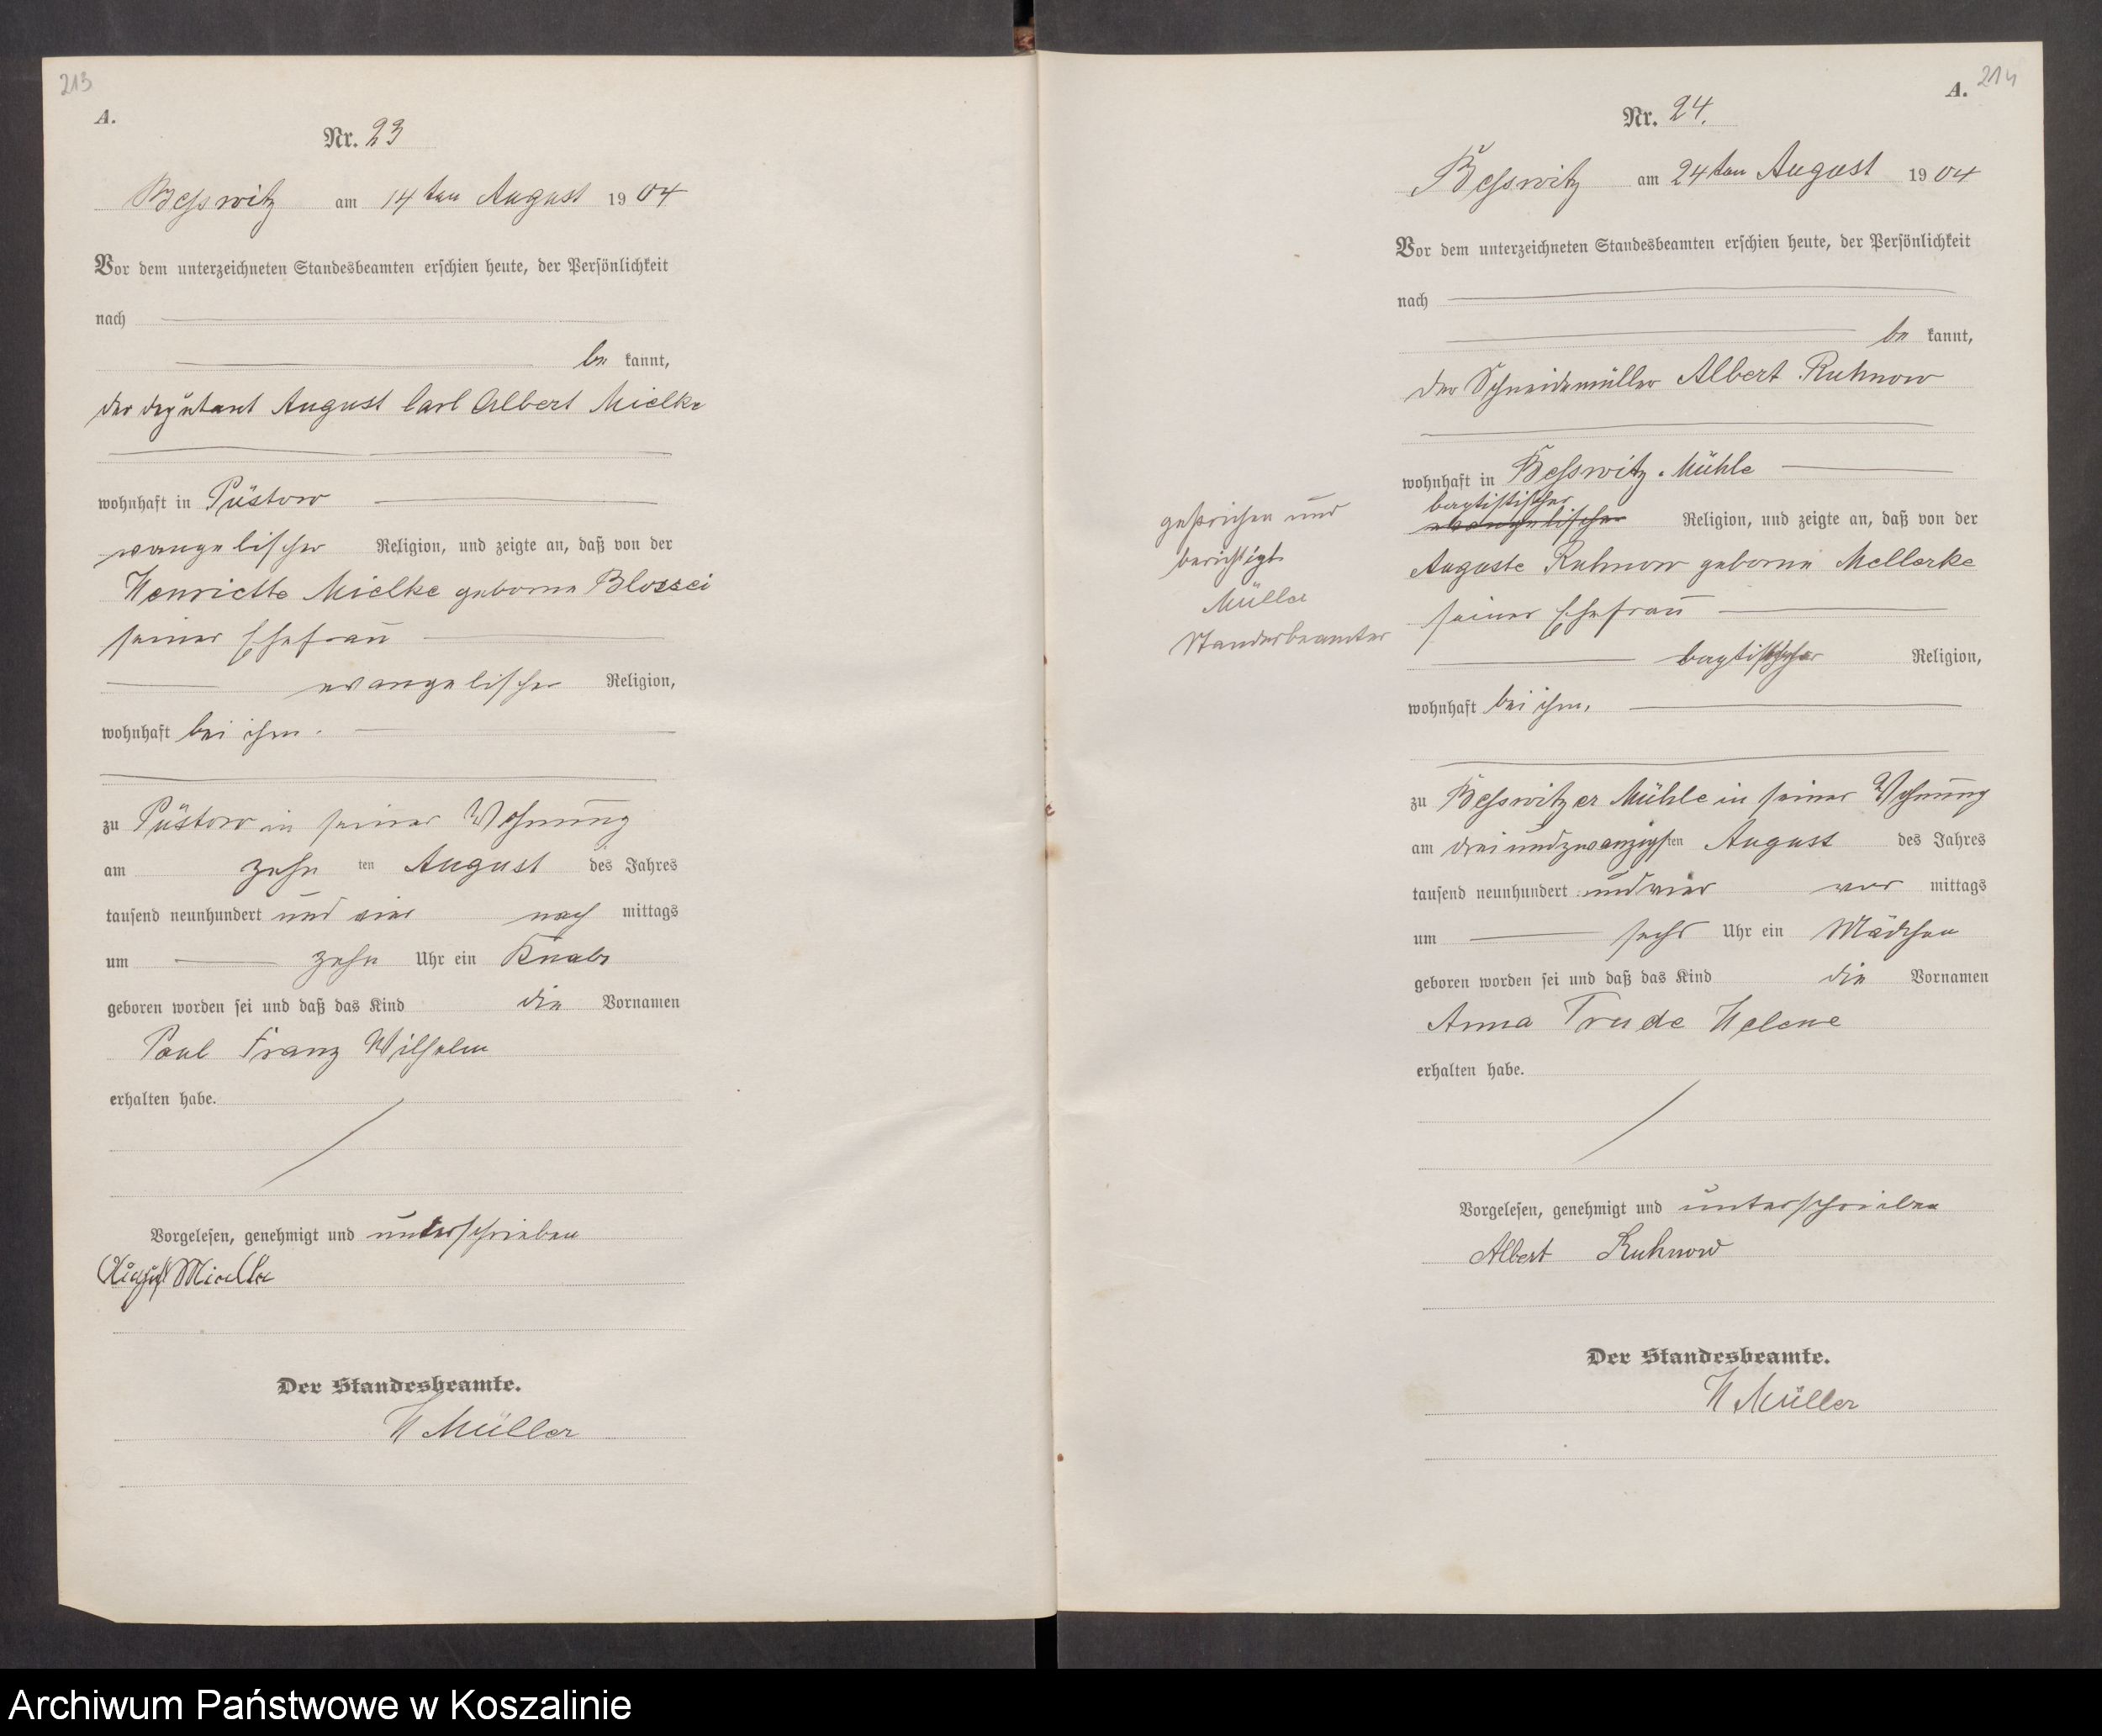 213
A.
Nr. 23
Besswitz am 14ten August 1904
Vor dem unterzeichneten Standesbeamten erschien heute, der Persönlichkeit
nach
be kannt,
der Deputant August Carl Albert Mielke
wohnhaft in Püstow
evangelischer Religion, und zeigte an, daß von der
Henriette Mielke geborne Blossei
seiner Ehefrau
evangelischer Religion,
wohnhaft bei ihm.
zu Püstow in seiner Wohnung
am zehn ten August des Jahres
tausend neunhundert und vier nach mittags
um zehn Uhr ein Knabe
geboren worden sei und daß das Kind die Vornamen
Paul Franz Wilhelm
erhalten habe.
Vorgelesen, genehmigt und unterschrieben
August Mielke
Der Standesbeamte.
H Müller
A. 214
Nr. 24.
Besswitz am 24ten August 1904
Vor dem unterzeichneten Standesbeamten erschien heute, der Persönlichkeit
nach
be kannt,
der Schneidemüller Albert Ruhnow
wohnhaft in Besswitz. Mühle
baptistischer
evangelischer Religion, und zeigte an, daß von der
Auguste Ruhnow geborne Mellerke
seiner Ehefrau
baptistischer Religion,
wohnhaft bei ihm.
gestrichen und
berichtigt
Müller
Standesbeamter
zu Besswitzer Mühle in seiner Wohnung
am dreiundzwanzigsten August des Jahres
tausend neunhundert und vier vor mittags
um sechs Uhr ein Mädchen
geboren worden sei und daß das Kind die Vornamen
Anna Trude Helene
erhalten habe.
Vorgelesen, genehmigt und unterschrieben
Albert Ruhnow
Der Standesbeamte.
H Müller
Archiwum Państwowe w Koszalinie